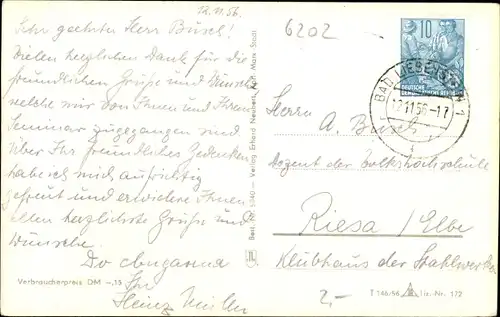 12.11.56.
Sehr geehrter Herr Busch!
Vielen herzlichen Dank für die
freundlichen Grüße und Wünsche
welche mir von Ihnen und Ihrem
Seminar zugegangen sind
Über Ihr freundliches Gedenken
habe ich mich aufrichtig
gefreut und erwidere Ihnen
allen herzlichste Grüße und
Wünsche.
Ihr
Heinz
Verbraucherpreis DM –,15
Verlag Erhard Neubert, Karl-Marx-Stadt
6202
10
DEUTSCHE
DEMOKRATISCHE REPUBLIK
BAD LIEBENSTEIN 1
12.11.56-17
Herrn
A. Busch
Dozent der Volkshochschule
Riesa / Elbe
Klubhaus der Stahlwerker
2,-
T 146/56 Liz.-Nr. 172